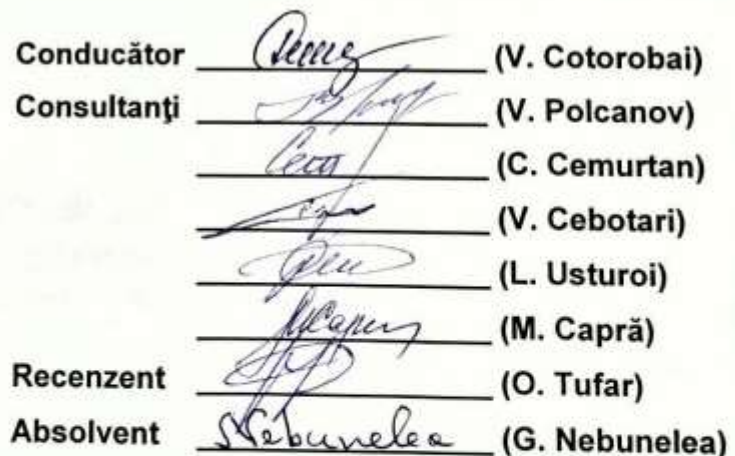 Conducător (V. Cotorobai)
Consultanţi (V. Polcanov)
(C. Cemurtan)
(V. Cebotari)
(L. Usturoi)
(M. Capră)
Recenzent (O. Tufar)
Absolvent Nebunelea (G. Nebunelea)